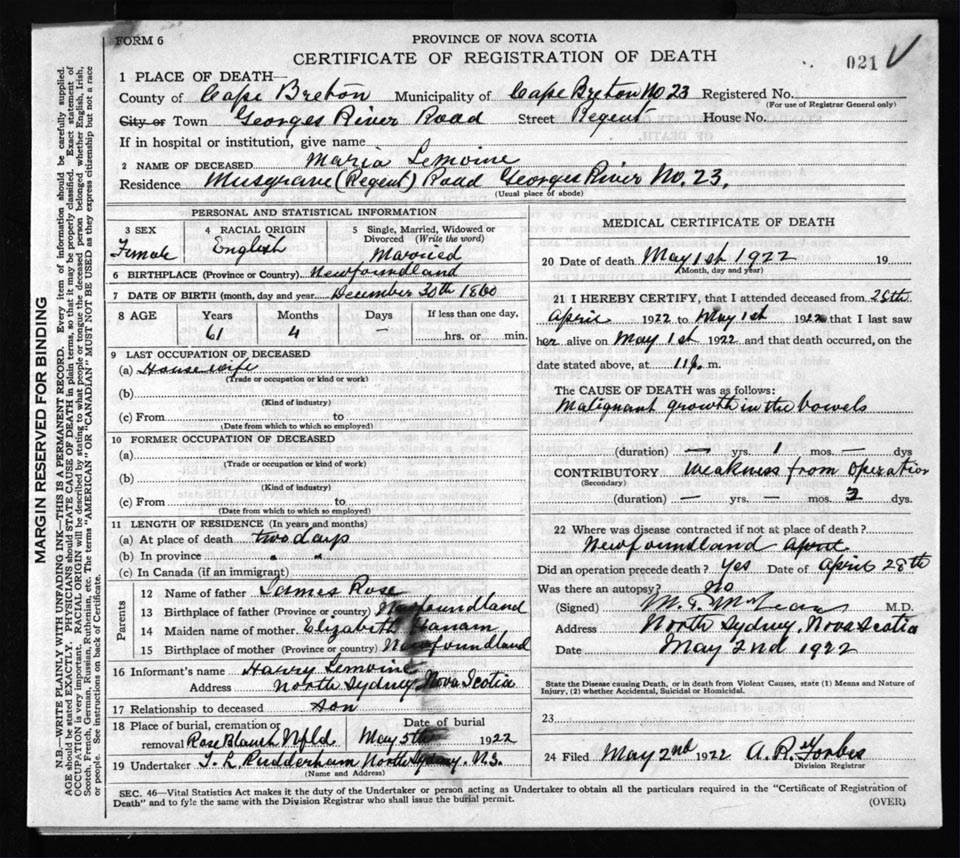 FORM 6
PROVINCE OF NOVA SCOTIA
CERTIFICATE OF REGISTRATION OF DEATH
021
1 PLACE OF DEATH—
County of Cape Breton Municipality of Cape Breton No 23 Registered No.
(For use of Registrar General only)
City or Town Georges River Road Street Regent House No.
If in hospital or institution, give name
2 NAME OF DECEASED Maria Lemoine
Residence Musgrave (Regent) Road Georges River No. 23,
(Usual place of abode)
PERSONAL AND STATISTICAL INFORMATION
3 SEX 4 RACIAL ORIGIN 5 Single, Married, Widowed or
Divorced (Write the word)
Female English Married
6 BIRTHPLACE (Province or Country) Newfoundland
7 DATE OF BIRTH (month, day and year) December 30th 1860
8 AGE Years Months Days If less than one day,
61 4 — hrs. or min.
9 LAST OCCUPATION OF DECEASED
(a) Housewife
(Trade or occupation or kind of work)
(b)
(Kind of industry)
(c) From to
(Date from which to which so employed)
10 FORMER OCCUPATION OF DECEASED
(a)
(Trade or occupation or kind of work)
(b)
(Kind of industry)
(c) From to
(Date from which to which so employed)
11 LENGTH OF RESIDENCE (In years and months)
(a) At place of death two days
(b) In province " "
(c) In Canada (if an immigrant)
Parents
12 Name of father James Rose
13 Birthplace of father (Province or country) Newfoundland
14 Maiden name of mother Elizabeth
15 Birthplace of mother (Province or country) Newfoundland
16 Informant's name Harry Lemoine
Address North Sydney Nova Scotia
17 Relationship to deceased Son
18 Place of burial, cremation or Date of burial
removal Rose Blanch Nfld May 5th 1922
19 Undertaker T. L. Rudderham North Sydney. N.S.
(Name and Address)
MEDICAL CERTIFICATE OF DEATH
20 Date of death May 1st 1922 19
(Month, day and year)
21 I HEREBY CERTIFY, that I attended deceased from 28th
April 1922 to May 1st 1922 that I last saw
her alive on May 1st 1922 and that death occurred, on the
date stated above, at 11 p. m.
The CAUSE OF DEATH was as follows:
Malignant growth in the bowels
(duration) — yrs. 1 mos. — dys
CONTRIBUTORY Weakness from Operation
(Secondary)
(duration) — yrs. — mos. 3 dys.
22 Where was disease contracted if not at place of death?
Newfoundland April
Did an operation precede death? Yes Date of April 28th
Was there an autopsy? No
(Signed) M. T. McLean M.D.
Address North Sydney, Nova Scotia
Date May 2nd 1922
State the Disease causing Death, or in death from Violent Causes, state (1) Means and Nature of
Injury, (2) whether Accidental, Suicidal or Homicidal.
23
24 Filed May 2nd 1922 A. R. Forbes
Division Registrar
SEC. 46—Vital Statistics Act makes it the duty of the Undertaker or person acting as Undertaker to obtain all the particulars required in the "Certificate of Registration of
Death" and to fyle the same with the Division Registrar who shall issue the burial permit.
(OVER)
MARGIN RESERVED FOR BINDING
N.B.—WRITE PLAINLY WITH UNFADING INK—THIS IS A PERMANENT RECORD. Every item of information should be carefully supplied.
AGE should be stated EXACTLY. PHYSICIANS should STATE CAUSE OF DEATH in plain terms, so that it may be properly classified. Exact statement of
OCCUPATION is very important. RACIAL ORIGIN will be described by stating to what people or tongue the deceased person belonged whether English, Irish,
Scotch, French, German, Russian, Ruthenian, etc. The terms "AMERICAN" OR "CANADIAN" MUST NOT BE USED as they express citizenship but not a race
or people. See instructions on back of Certificate.